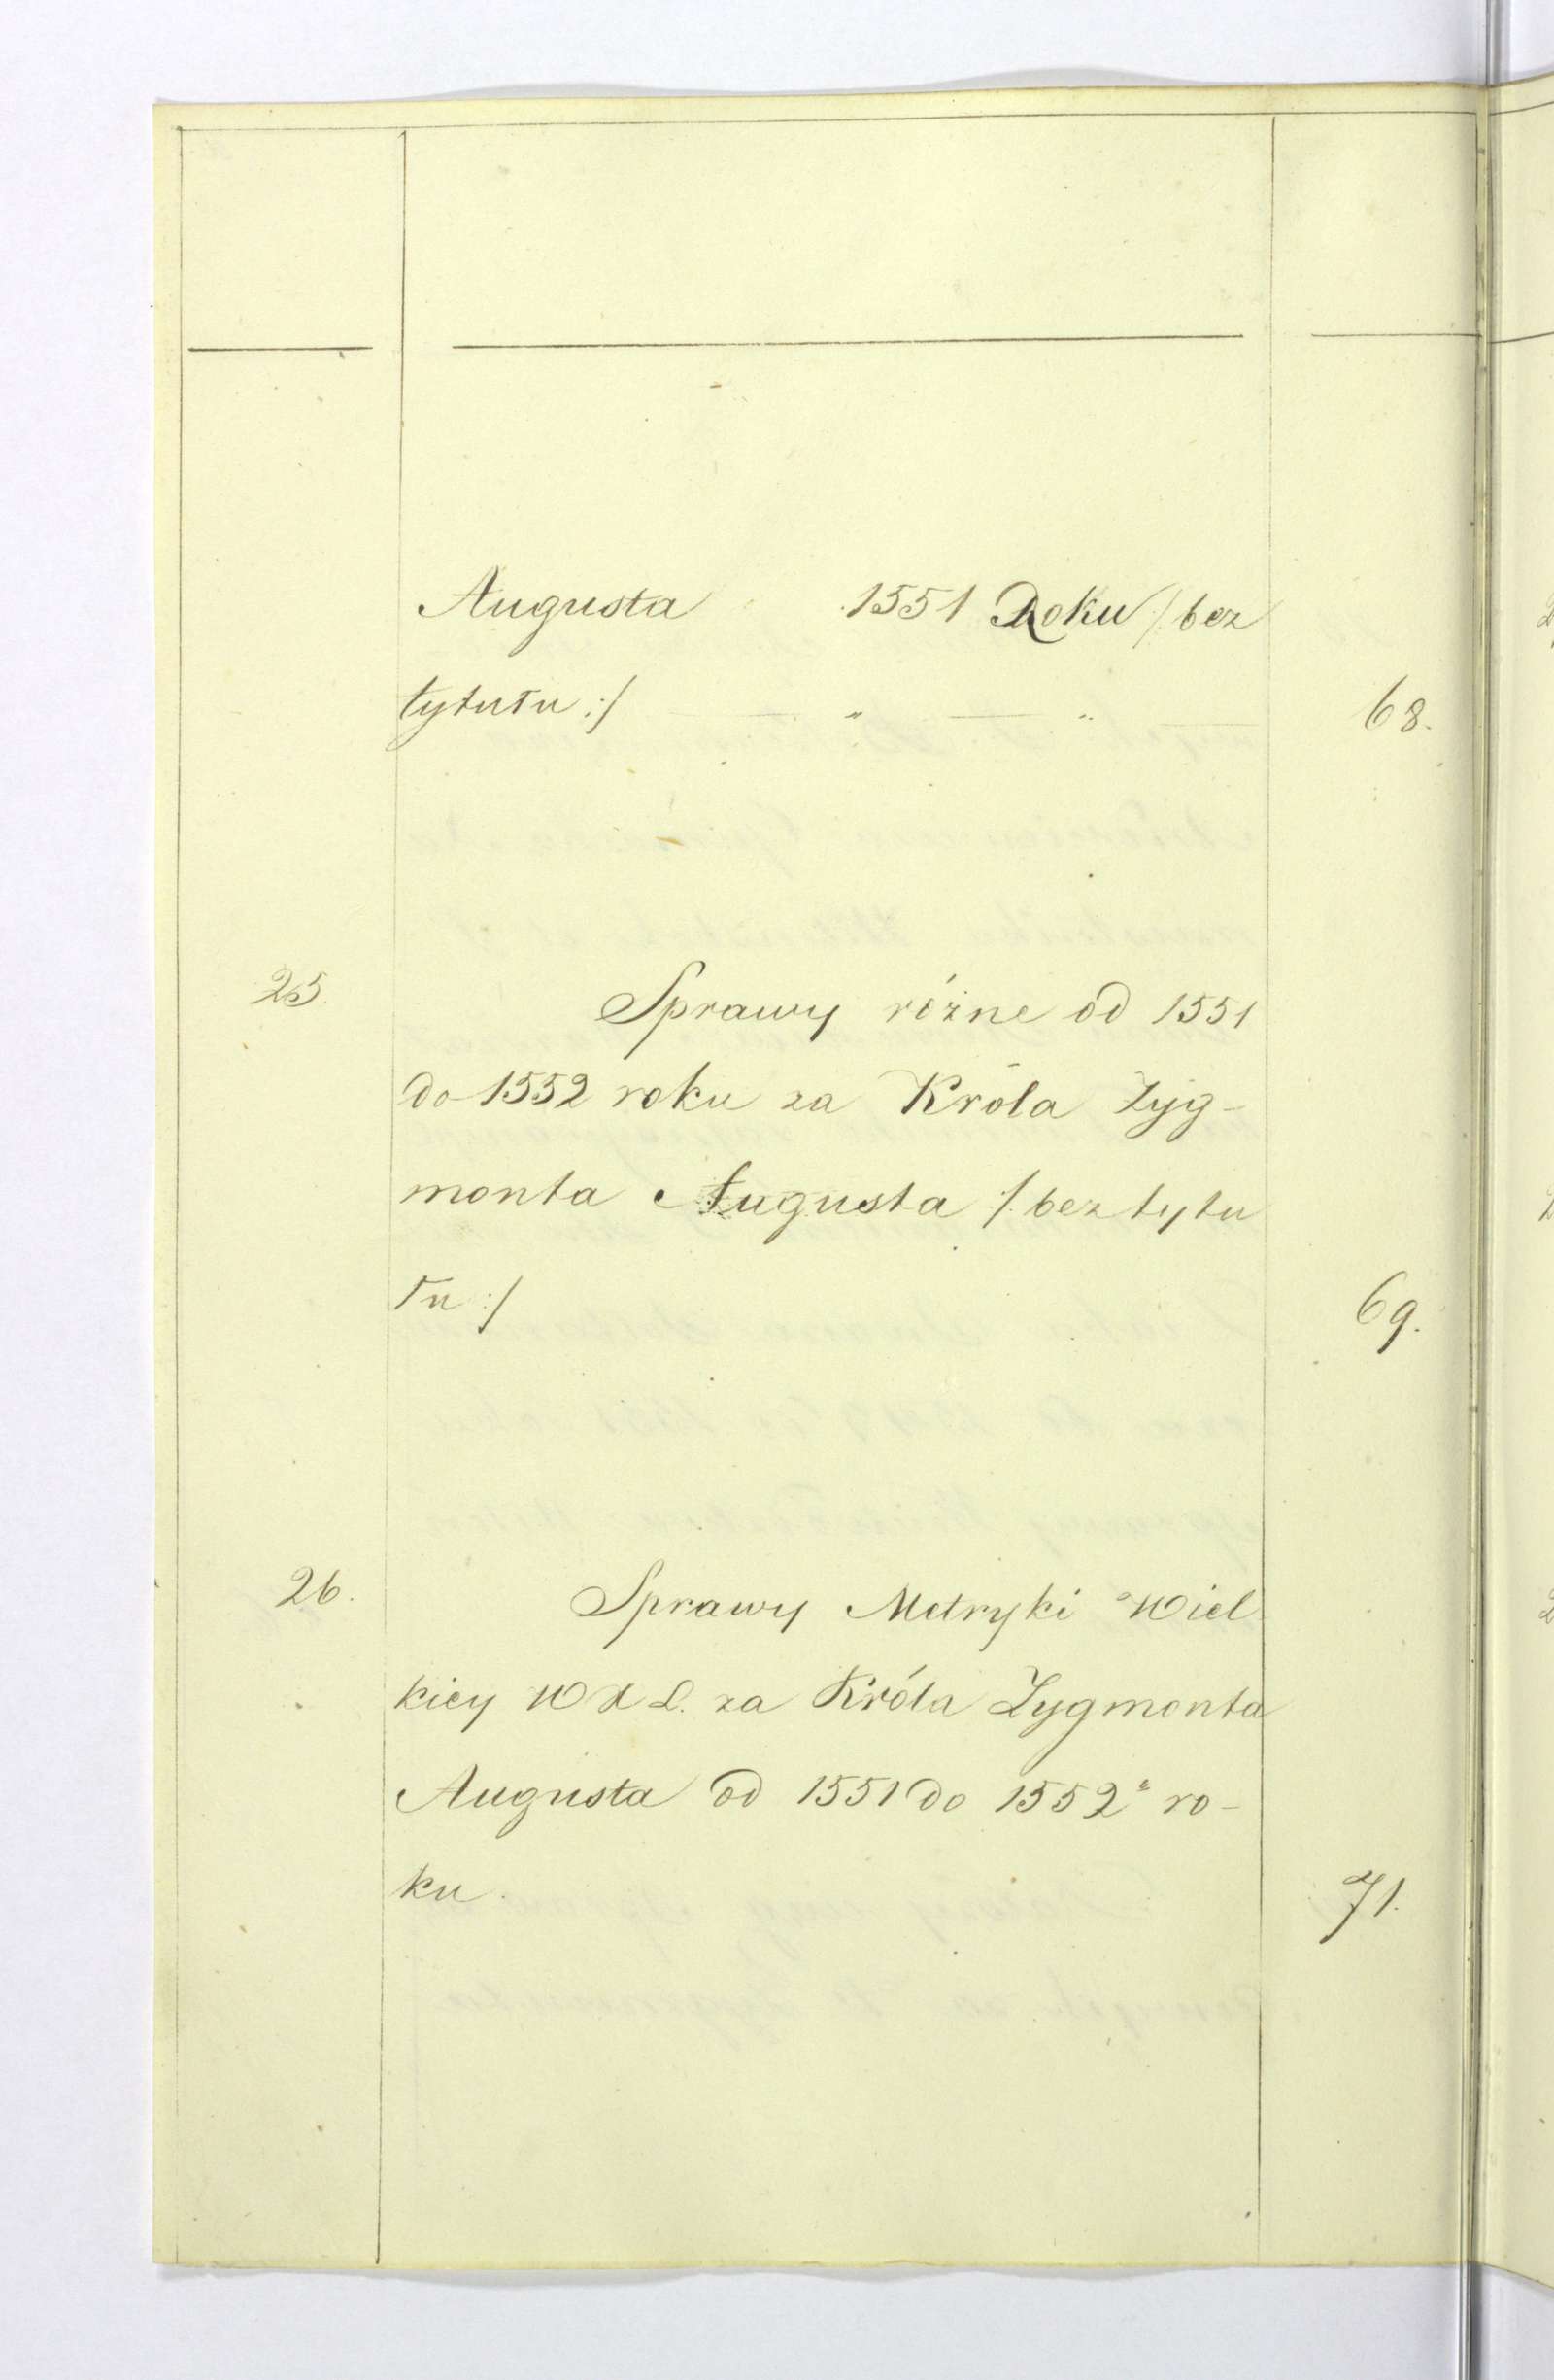 Augusta 1551 Roku /: bez
tytułu :/ 68.
25. Sprawy różne od 1551
do 1552 roku za Króla Zyg-
monta Augusta /: bez tytu
łu :/ 69.
26. Sprawy Metryki Wiel
kiey W X L. za Króla Zygmonta
Augusta od 1551 do 1552 ro-
ku. 71.